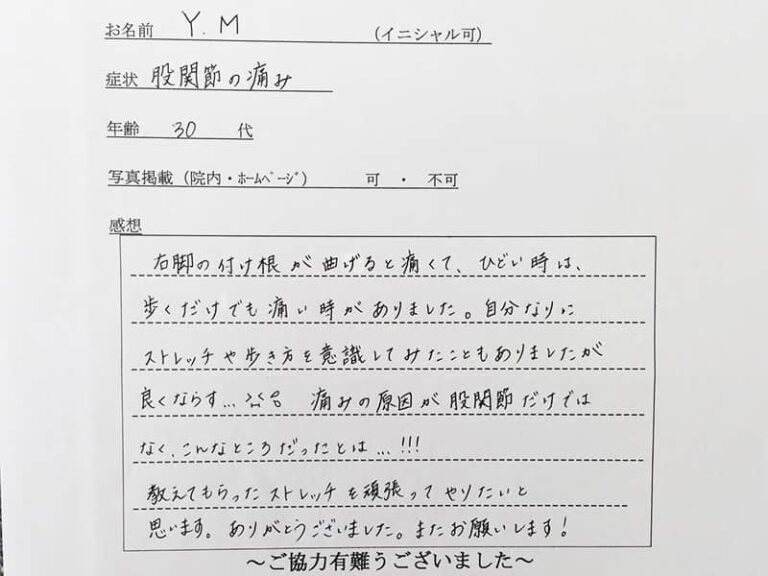 お名前 Y.M (イニシャル可)
症状 股関節の痛み
年齢 30 代
写真掲載 (院内・ホームページ) 可 ・ 不可
感想
右脚の付け根が曲げると痛くて、ひどい時は、
歩くだけでも痛い時がありました。自分なりに
ストレッチや歩き方を意識してみたこともありましたが
良くならす… 痛みの原因が股関節だけでは
なく、こんなところだったとは…!!!
教えてもらったストレッチを頑張ってやりたいと
思います。ありがとうございました。またお願いします!
～ご協力有難うございました～